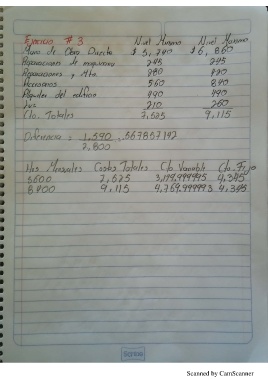 Ejercicio # 3 Nivel Minimo Nivel Maximo
Mano de Obra Directa $ 5, 280 $ 6, 860
245 245
Reparaciones y Mto. 280 420
560 840
Alquiler del edificio 490 490
Luz 210 260
Cto. Totales 7,525 9,115
Diferencia = 1,590 .567857142
2,800
Hrs Mensuales Costos Totales Cto Variable Cto. Fijo
5600 7,525 3,179.999995 4,345
8400 9,115 4,769.999993 4,345
Scanned by CamScanner